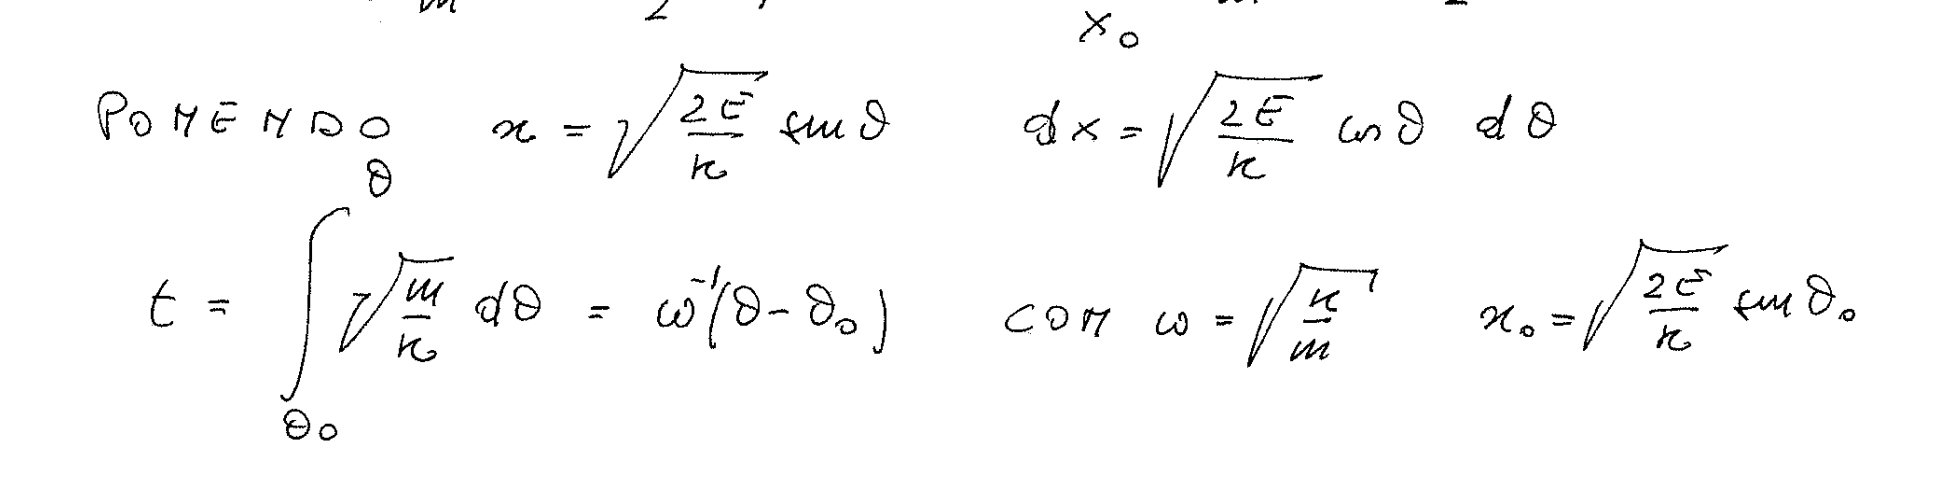 x₀
PONENDO x = √(2E/k) sin θ dx = √(2E/k) cos θ dθ
t = ∫_{θ₀}^{θ} √(m/k) dθ = ω⁻¹(θ - θ₀) CON ω = √(k/m) x₀ = √(2E/k) sin θ₀